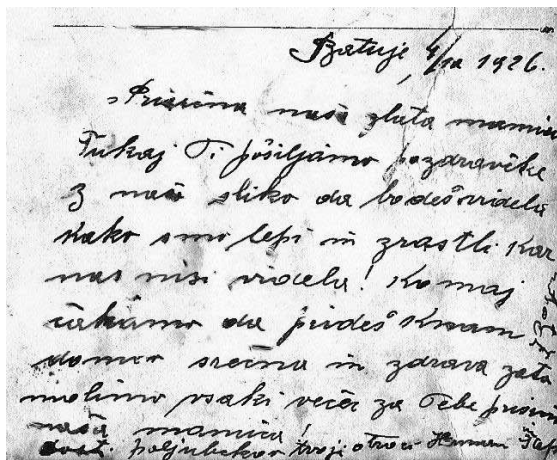 Batuje, 4/10 1926.
Prisrčna naša zlata mamica
Tukaj Ti pošiljamo pozdravčke
z našo sliko da bodeš videla
kako smo lepi in zrastli kar
nas nisi videla! Komaj
čakamo da prideš k nam
domov srečna in zdrava zato
molimo vsaki večer za Tebe
naša mamica!
dost. poljubčkov tvoji otroci Herman